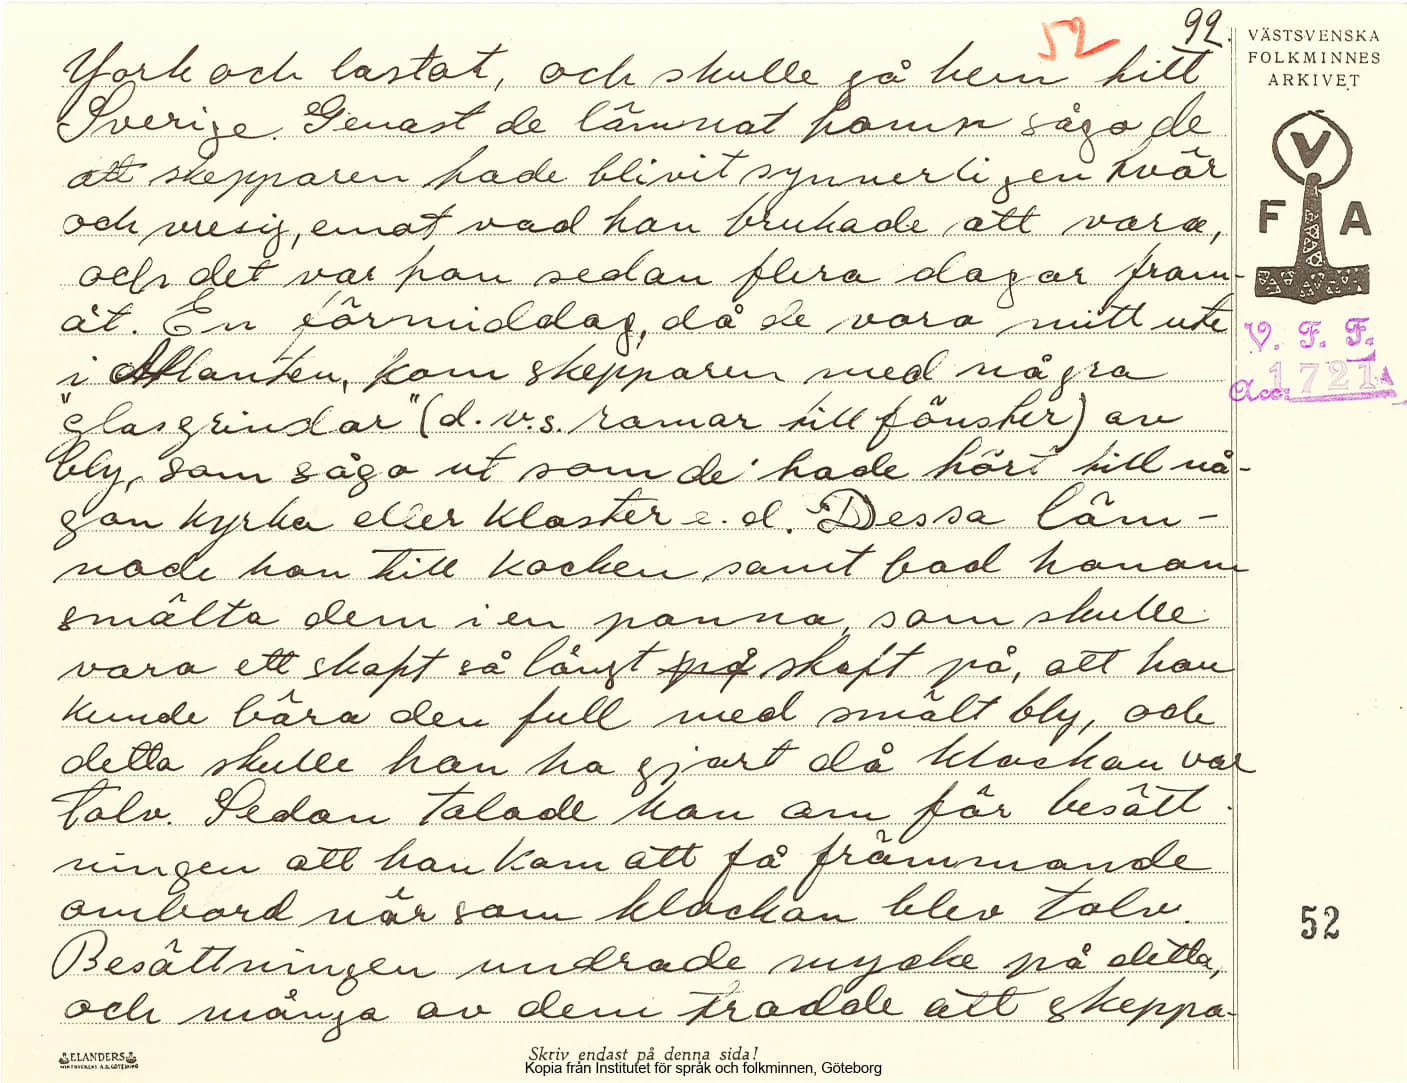 52
92.
VÄSTSVENSKA
FOLKMINNES
ARKIVET
V
F A
V. F. F.
Acc. 1721
York och lastat, och skulle gå hem till
Sverige. Genast de lämnat hamn sågo de
att skepparen hade blivit synnerligen tvär
och vresig, emot vad han brukade att vara,
och det var han sedan flera dagar fram-
åt. En förmiddag, då de voro mitt ute
i Atlanten, kom skepparen med några
"glasgrindar" (d.v.s. ramar till fönster) av
bly, som sågo ut som de hade hört till nå-
gon kyrka eller kloster e. d. Dessa läm-
nade han till kocken samt bad honom
smälta dem i en panna, som skulle
vara ett skaft så långt på skaft på, att han
kunde bära den full med smält bly, och
detta skulle han ha gjort då klockan var
tolv. Sedan talade han om för besätt-
ningen att han kom att få främmande
ombord när som klockan blev tolv.
Besättningen undrade mycke på detta,
och många av dem trodde att skeppa-
52
ELANDERS
Skriv endast på denna sida!
Kopia från Institutet för språk och folkminnen, Göteborg